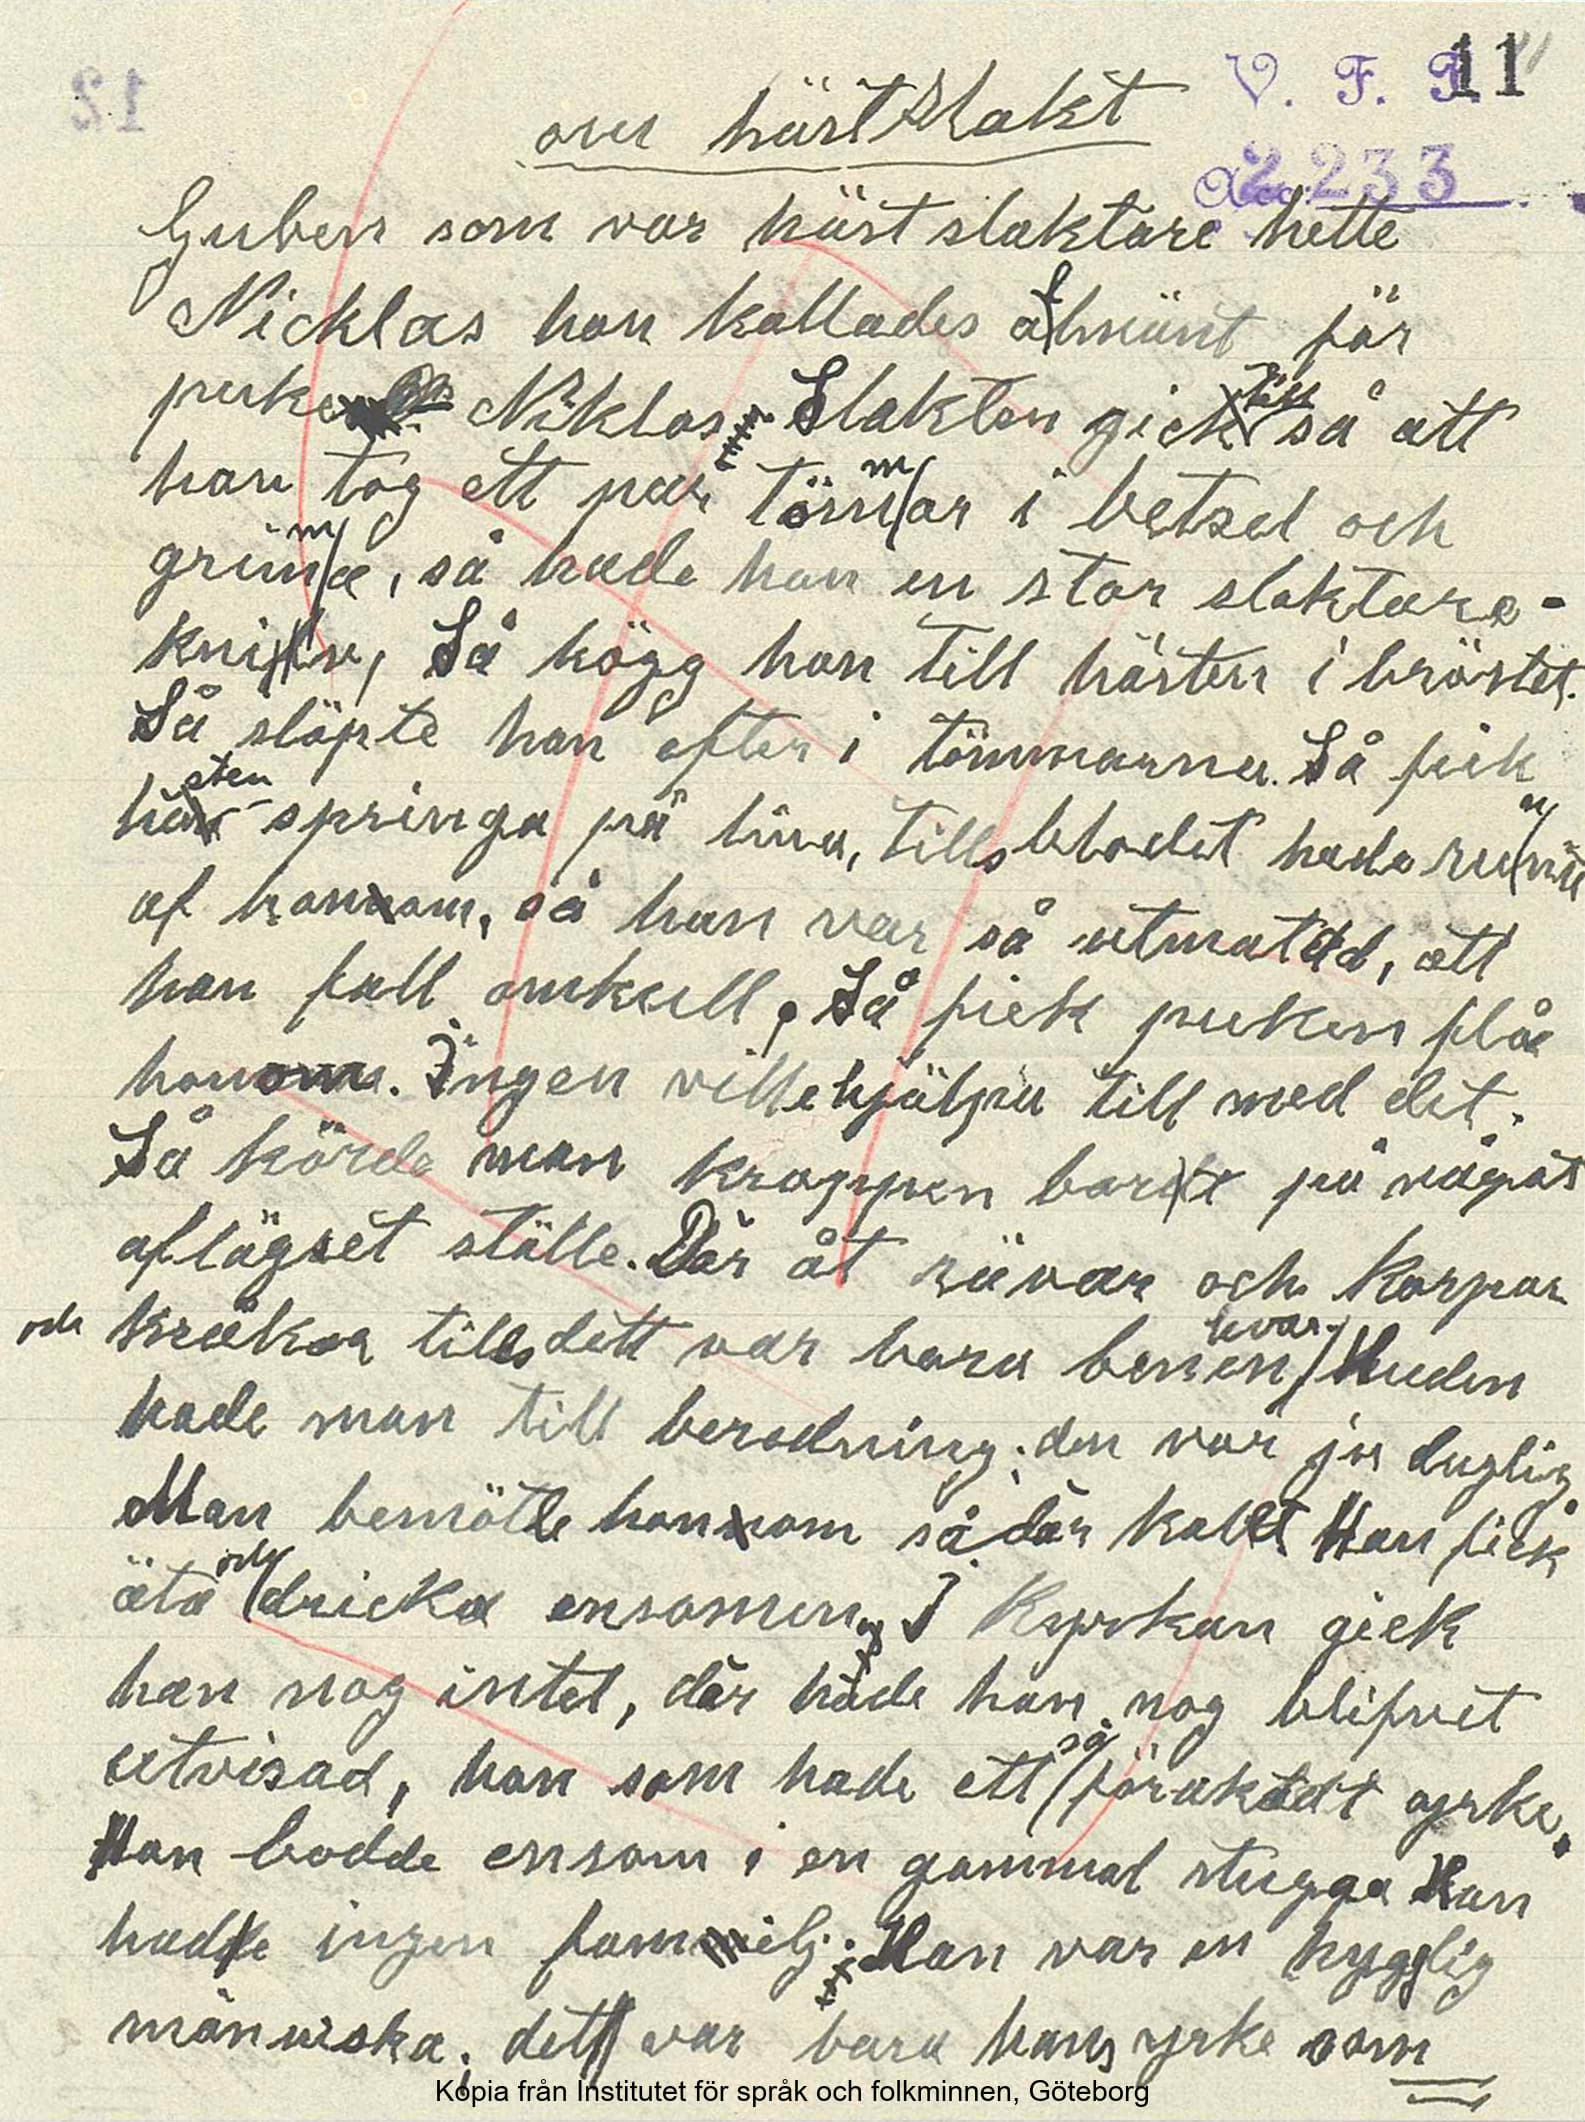 12
V. F. F. 11
om hästslakt
Acc. 2233
Guben som var hästslaktare hette
Nicklas han kallades allmänt för
puke Niklas. Slakten gick till så att
han tog ett par tömmar i betsel och
grimma, så hade han en stor slaktare-
kniv, Så högg han till hästen i bröstet.
Så släpte han efter i tömmarna. Så fick
hästen springa på lina, tills blodet hade runnit
af honom, så han var så utmatad, att
han fall omkull. Så fick puken flå
honom. Ingen ville hjälpa till med det.
Så körde man kroppen bort på något
aflägset ställe. Där åt rävar och korpar
och kråkor tills dett var bara benen kvar. Huden
hade man till beredning; den var ju duglig
Man bemötte honom så där kallt Han fick
äta och dricka ensammen, I kyrkan gick
han nog intet, där hade han nog blifvet
utvisad, han som hade ett så föraktadt yrke.
Han bodde ensam i en gammal stugga Han
hade ingen familj. Han var en hygglig
människa; det var bara hans yrke som
Kopia från Institutet för språk och folkminnen, Göteborg